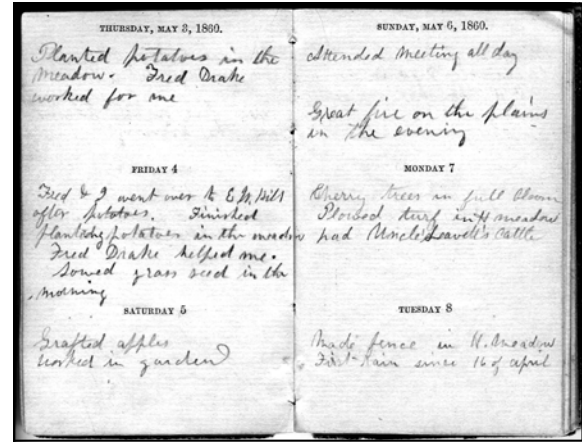 THURSDAY, MAY 3, 1860.
Planted potatoes in the
meadow. Fred Drake
worked for me
FRIDAY 4
Fred & I went over to E
after potatoes. Finished
planting potatoes in the meadow
Fred Drake helped me.
Sowed grass seed in the
morning
SATURDAY 5
Grafted apples
worked in garden
SUNDAY, MAY 6, 1860.
Attended meeting all day
Great fire on the plains
in the evening
MONDAY 7
Cherry trees in full bloom
Plowed turf in H meadow
had Uncle Leavett's cattle
TUESDAY 8
Made fence in H. Meadow
First rain since 16 of april